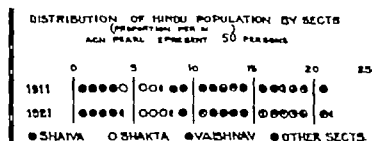 DISTRIBUTION OF HINDU POPULATION BY SECTS
(PROPORTION PER
PEARL 50 PERSONS
0 5 10 15 20 25
1911
1921
SHAIVA SHAKTA VAISHNAV OTHER SECTS